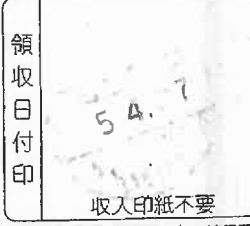 領収日付印
54. 7
収入印紙不要